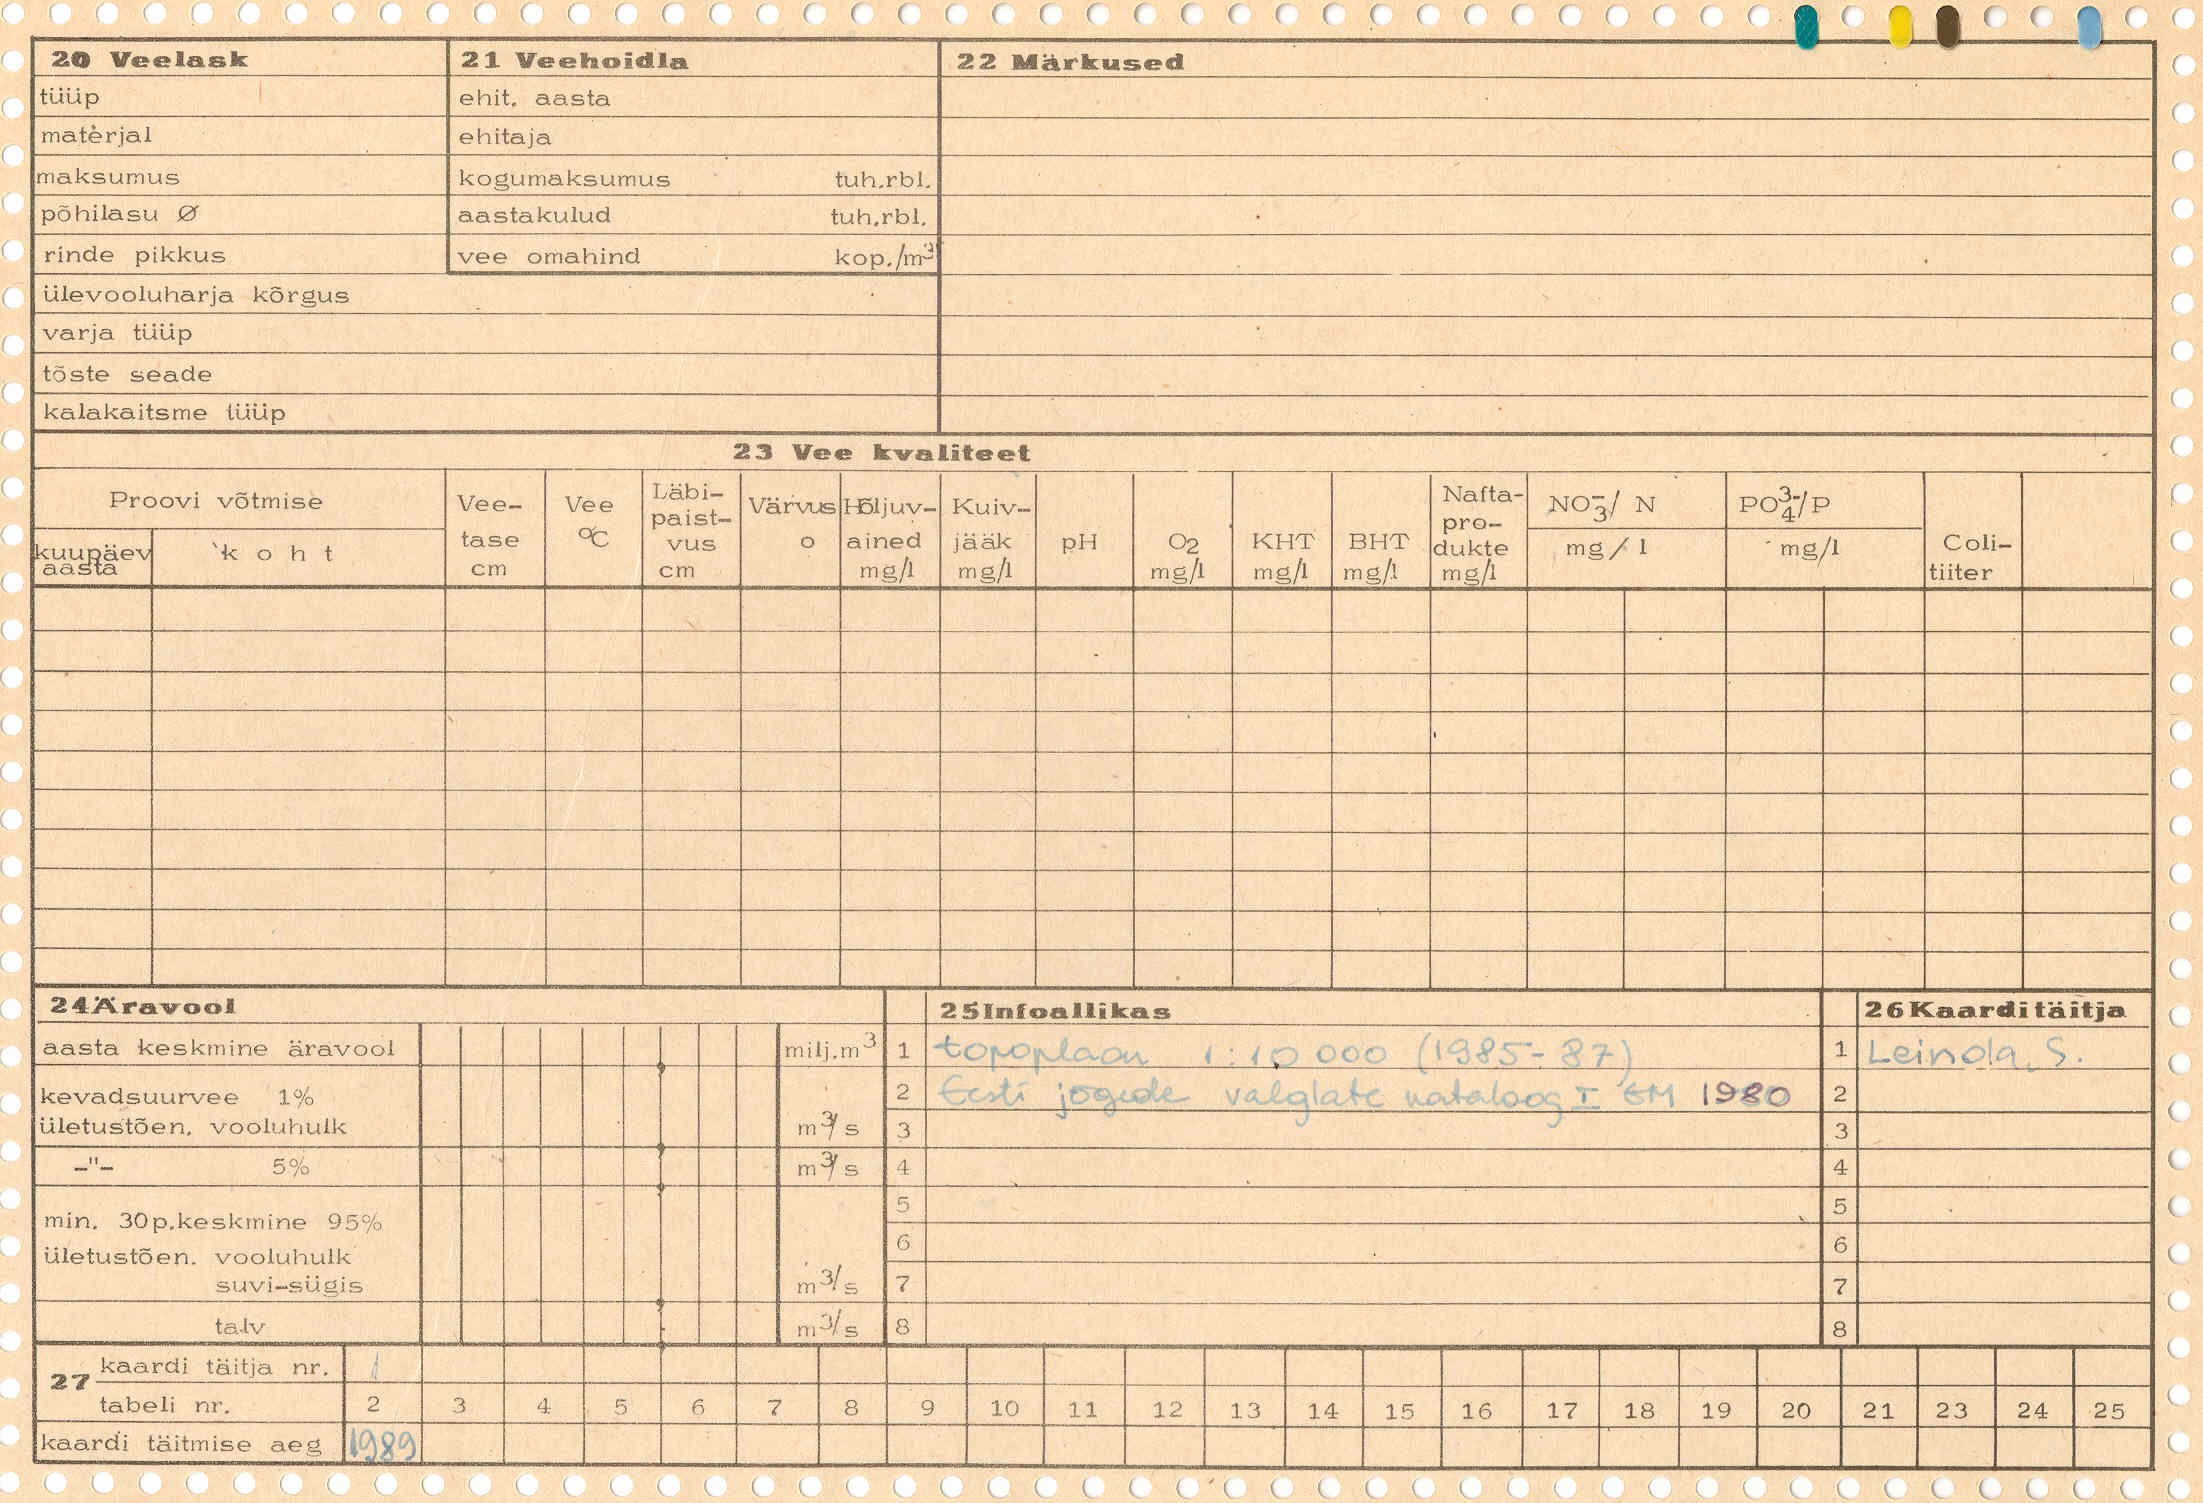 20 Veelask
tüüp
materjal
maksumus
põhilasu Ø
rinde pikkus
ülevooluharja kõrgus
varja tüüp
tõste seade
kalakaitsme tüüp
21 Veehoidla
ehit. aasta
ehitaja
kogumaksumus tuh.rbl.
aastakulud tuh.rbl.
vee omahind kop./m³
22 Märkused
23 Vee kvaliteet
Proovi võtmise
kuupäev
aasta
k o h t
Vee-
tase
cm
Vee
°C
Läbi-
paist-
vus
cm
Värvus
o
Hõljuv-
ained
mg/l
Kuiv-
jääk
mg/l
pH
O2
mg/l
KHT
mg/l
BHT
mg/l
Nafta-
pro-
dukte
mg/l
NO₃⁻/ N
mg / l
PO₄³⁻/P
mg/l
Coli-
tiiter
24 Äravool
aasta keskmine äravool milj.m³
kevadsuurvee 1%
ületustõen. vooluhulk m³/s
-"- 5% m³/s
min. 30p.keskmine 95%
ületustõen. vooluhulk
suvi-sügis m³/s
talv m³/s
25 Infoallikas
1 topoplaan 1:10 000 (1985-87)
2 Eesti jõgede valglate kataloog I EM 1980
3
4
5
6
7
8
26 Kaarditäitja
1 Leinola, S.
2
3
4
5
6
7
8
27 kaardi täitja nr. 1
tabeli nr. 2 3 4 5 6 7 8 9 10 11 12 13 14 15 16 17 18 19 20 21 23 24 25
kaardi täitmise aeg 1989